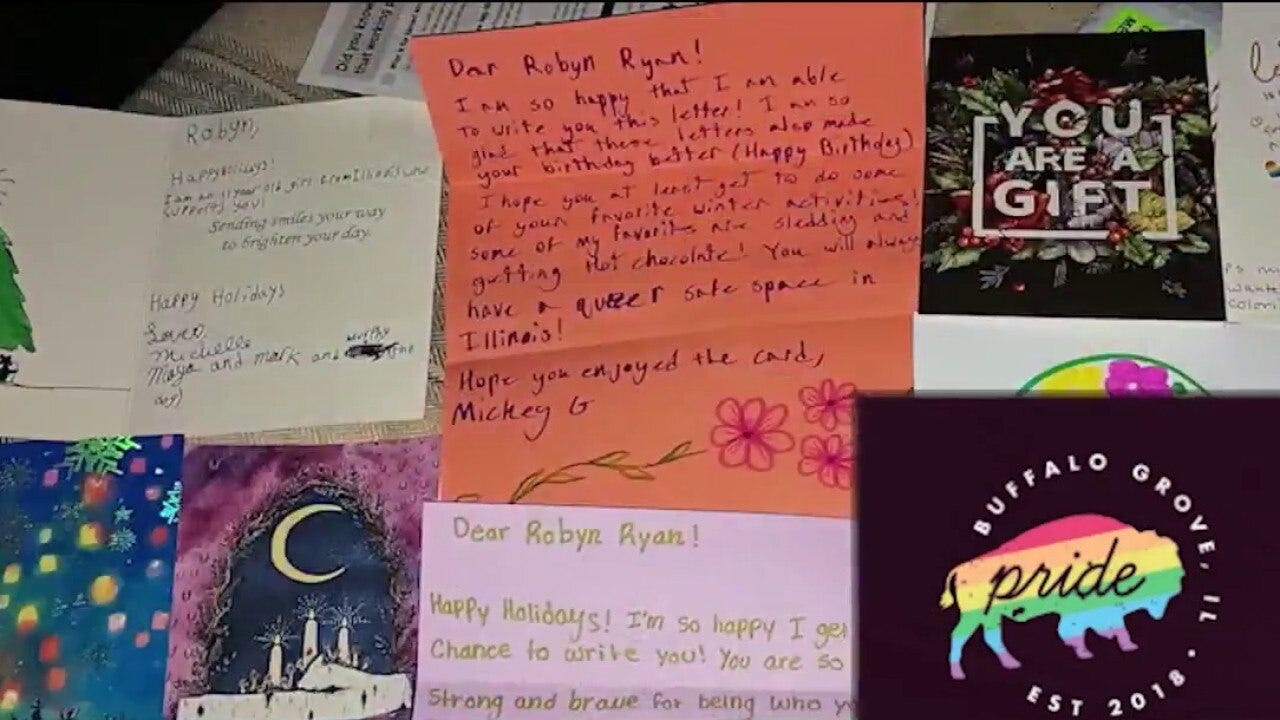 Did you know
that working p
Robyn,
Happy Holidays!
I am an 11 year old girl from Illinois who
supports you!
Sending smiles your way
to brighten your day.
Happy Holidays
Love,
Michelle
Maya and mark and
Murphy
Dear Robyn Ryan!
I am so happy that I am able
to write you this letter! I am so
glad that these letters also made
your birthday better (Happy Birthday)
I hope you at least get to do some
of your favorite winter activities!
some of my favorites are sledding and
getting Hot chocolate! You will always
have a queer safe space in
Illinois!
Hope you enjoyed the card,
Mickey G
Dear Robyn Ryan!
Happy Holidays! I'm so happy I get
Chance to write you! You are so
Strong and brave for being who y
YOU
ARE A
GIFT
BUFFALO GROVE, IL •
pride
EST 2018